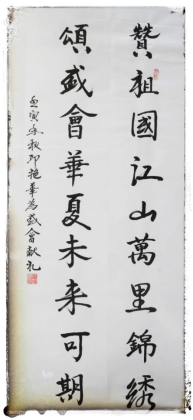 贊祖國江山萬里錦綉
頌盛會華夏未来可期
壬寅年秋印艳華為盛會献礼